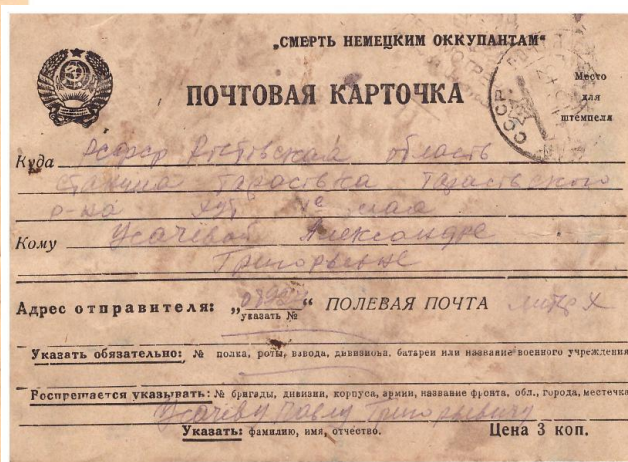 „СМЕРТЬ НЕМЕЦКИМ ОККУПАНТАМ“
ПОЧТОВАЯ КАРТОЧКА
Место
для
штемпеля
СССР
Куда РСФСР Ростовская область
станица Тарасовка Тарасовского
р-на
Кому Усачевой Александре
Григорьевне
Адрес отправителя: „ “ ПОЛЕВАЯ ПОЧТА
указать №
Указать обязательно: № полка, роты, взвода, дивизиона, батареи или название военного учреждения
Воспрещается указывать: № бригады, дивизии, корпуса, армии, название фронта, обл., города, местечка
Усачеву Павлу Григорьевичу
Указать: фамилию, имя, отчество. Цена 3 коп.